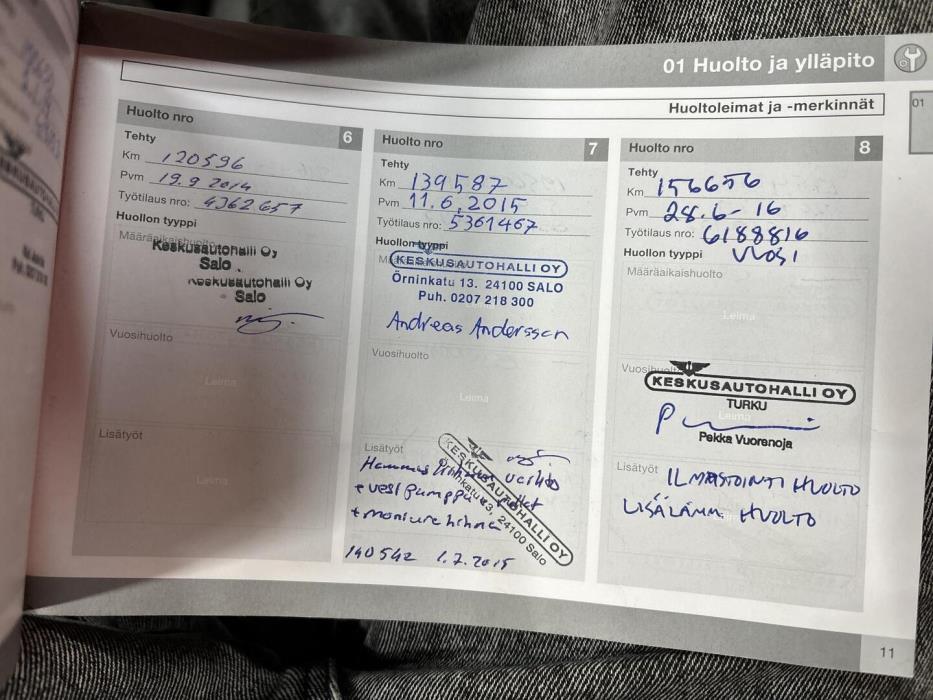 01 Huolto ja ylläpito
Huoltoleimat ja -merkinnät
01
Huolto nro 6
Tehty
Km 120596
Pvm 19.9 2014
Työtilaus nro: 4362657
Huollon tyyppi
Määräaikaishuolto
Keskusautohalli Oy
Salo
Keskusautohalli Oy
Salo
Vuosihuolto
Leima
Lisätyöt
Leima
Huolto nro 7
Tehty
Km 139587
Pvm 11.6.2015
Työtilaus nro: 5361467
Huollon tyyppi
KESKUSAUTOHALLI OY
Örninkatu 13. 24100 SALO
Puh. 0207 218 300
Andreas Andersson
Vuosihuolto
Leima
Lisätyöt
Hammas vaihto
+ vesipumppu
+ moniurahihna
KESKUSAUTOHALLI OY
Örninkatu 13, 24100 Salo
140542 1.7.2015
Huolto nro 8
Tehty
Km 156656
Pvm 28.6-16
Työtilaus nro: 6188816
Huollon tyyppi VUOSI
Määräaikaishuolto
Leima
Vuosihuolto
KESKUSAUTOHALLI OY
TURKU
Leima
Pekka Vuorenoja
Lisätyöt ILMASTOINTI HUOLTO
LISÄLÄMM. HUOLTO
11